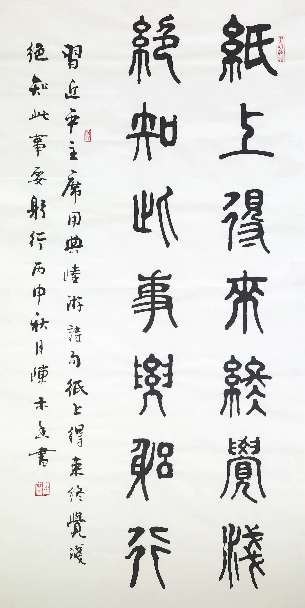 紙上得來終覺淺
絕知此事要躬行
習近平主席用典陸游詩句紙上得来终覺淺
絕知此事要躬行丙申秋月陳木書